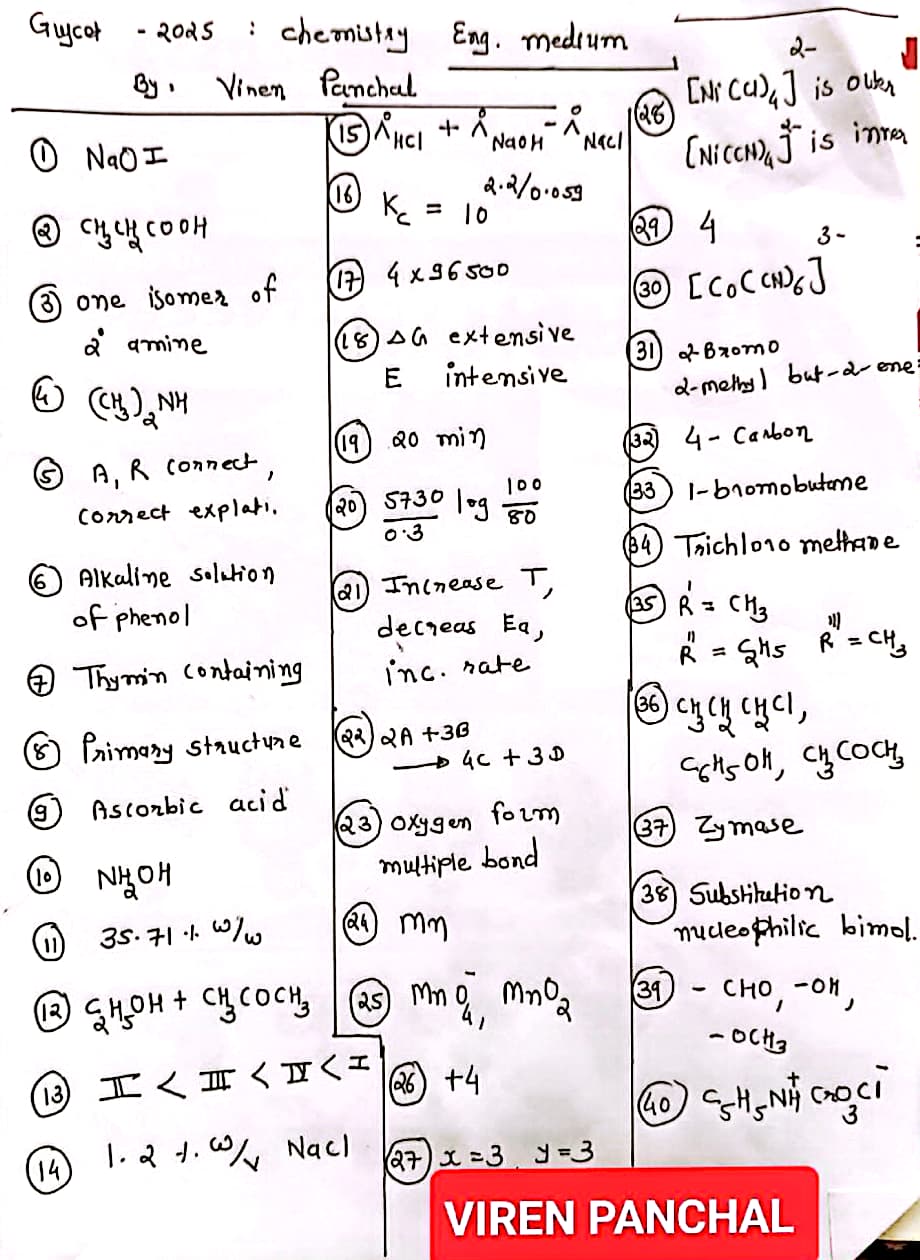 Gujcet - 2025 : chemistry Eng. medium
By, Viren Panchal
① NaOI
② CH₃CH₂COOH
③ one isomer of
2° amine
④ (CH₃)₂NH
⑤ A, R correct,
correct explati.
⑥ Alkaline solution
of phenol
⑦ Thymin containing
⑧ Primary structure
⑨ Ascorbic acid
⑩ NH₂OH
⑪ 35.71 % w/w
⑫ C₂H₅OH + CH₃COCH₃
⑬ II < III < IV < I
⑭ 1.2 % w/v NaCl
⑮ Λ°HCl + Λ°NaOH - Λ°NaCl
⑯ Kc = 10^2.2/0.059
⑰ 4 x 96500
⑱ ΔG extensive
E intensive
⑲ 20 min
⑳ 5730/0.3 log 100/80
㉑ Increase T,
decreas Ea,
inc. rate
㉒ 2A + 3B
→ 4C + 3D
㉓ oxygen form
multiple bond
㉔ Mn
㉕ MnO₄⁻, MnO₂
㉖ +4
㉗ x = 3 y = 3
㉘ [Ni(Cl)₄]²⁻ is outer
[Ni(CN)₄]²⁻ is inner
㉙ 4
㉚ [Co(CN)₆]³⁻
㉛ 2-Bromo
2-methyl but-2-ene
㉜ 4-Carbon
㉝ 1-bromobutane
㉞ Trichloro methane
㉟ R' = CH₃
R'' = C₂H₅ R''' = CH₃
㊱ CH₃CH₂CH₂Cl,
C₆H₅OH, CH₃COCH₃
㊲ Zymase
㊳ Substitution
nucleophilic bimol.
㊴ - CHO, -OH,
- OCH₃
㊵ C₅H₅NH⁺ CrO₃Cl⁻
VIREN PANCHAL